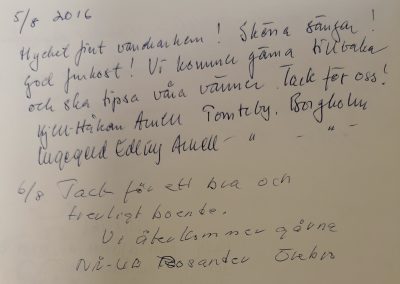 5/8 2016
Mycket fint vandrarhem! Sköna sängar!
God frukost! Vi kommer gärna tillbaka
och ska tipsa våra vänner. Tack för oss!
Kjell-Håkan Arnell Tomteby. Borgholm
Ingegerd Edling Arnell — " — " —
6/8 Tack för ett bra och
trevligt boende.
Vi återkommer gärna
Rosander Örebro